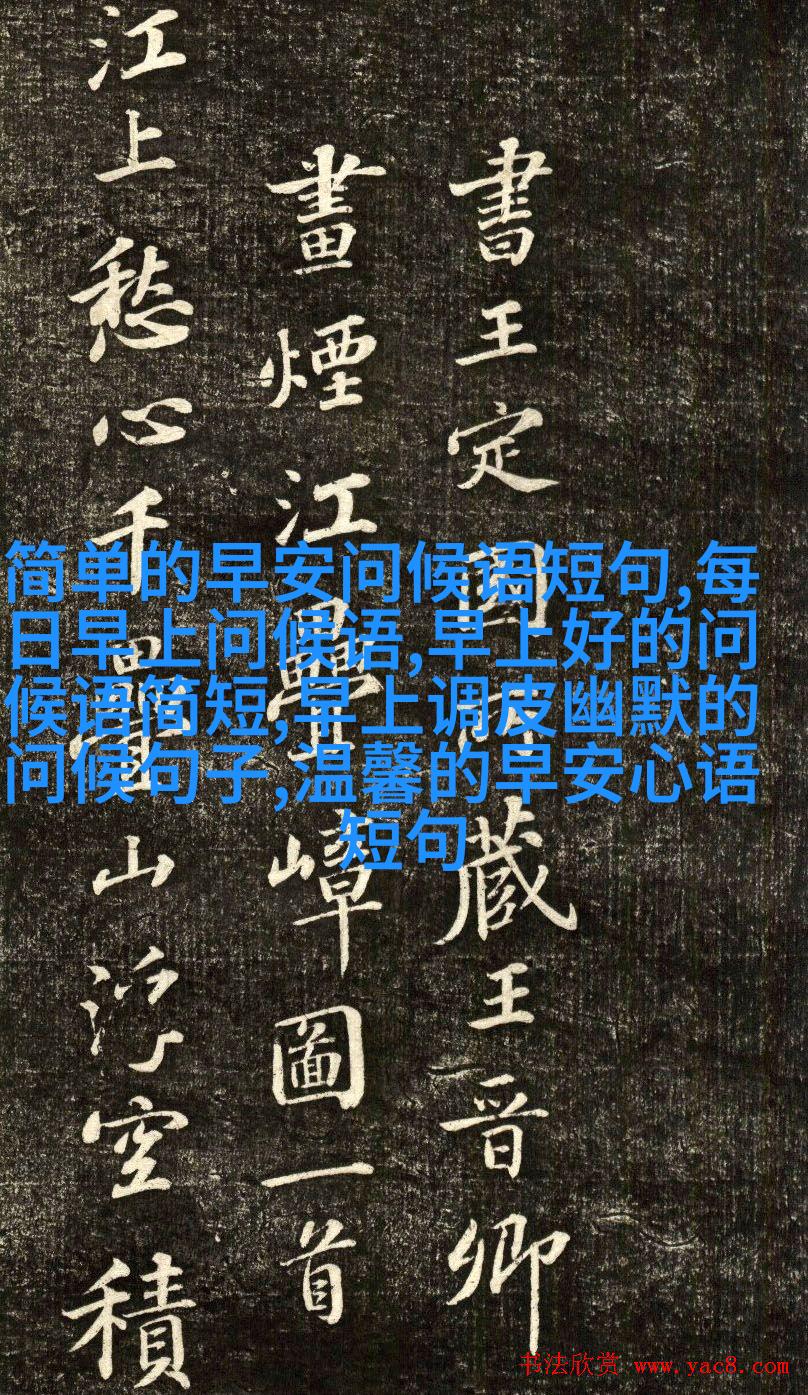 書王定國所藏王晉卿
畫煙江疊嶂圖一首
江上愁心千疊山浮空積
简单的早安问候语短句,每
日早上问候语,早上好的问
候语简短,早上调皮幽默的
问候句子,温馨的早安心语
短句
书法欣赏 www.yac8.com